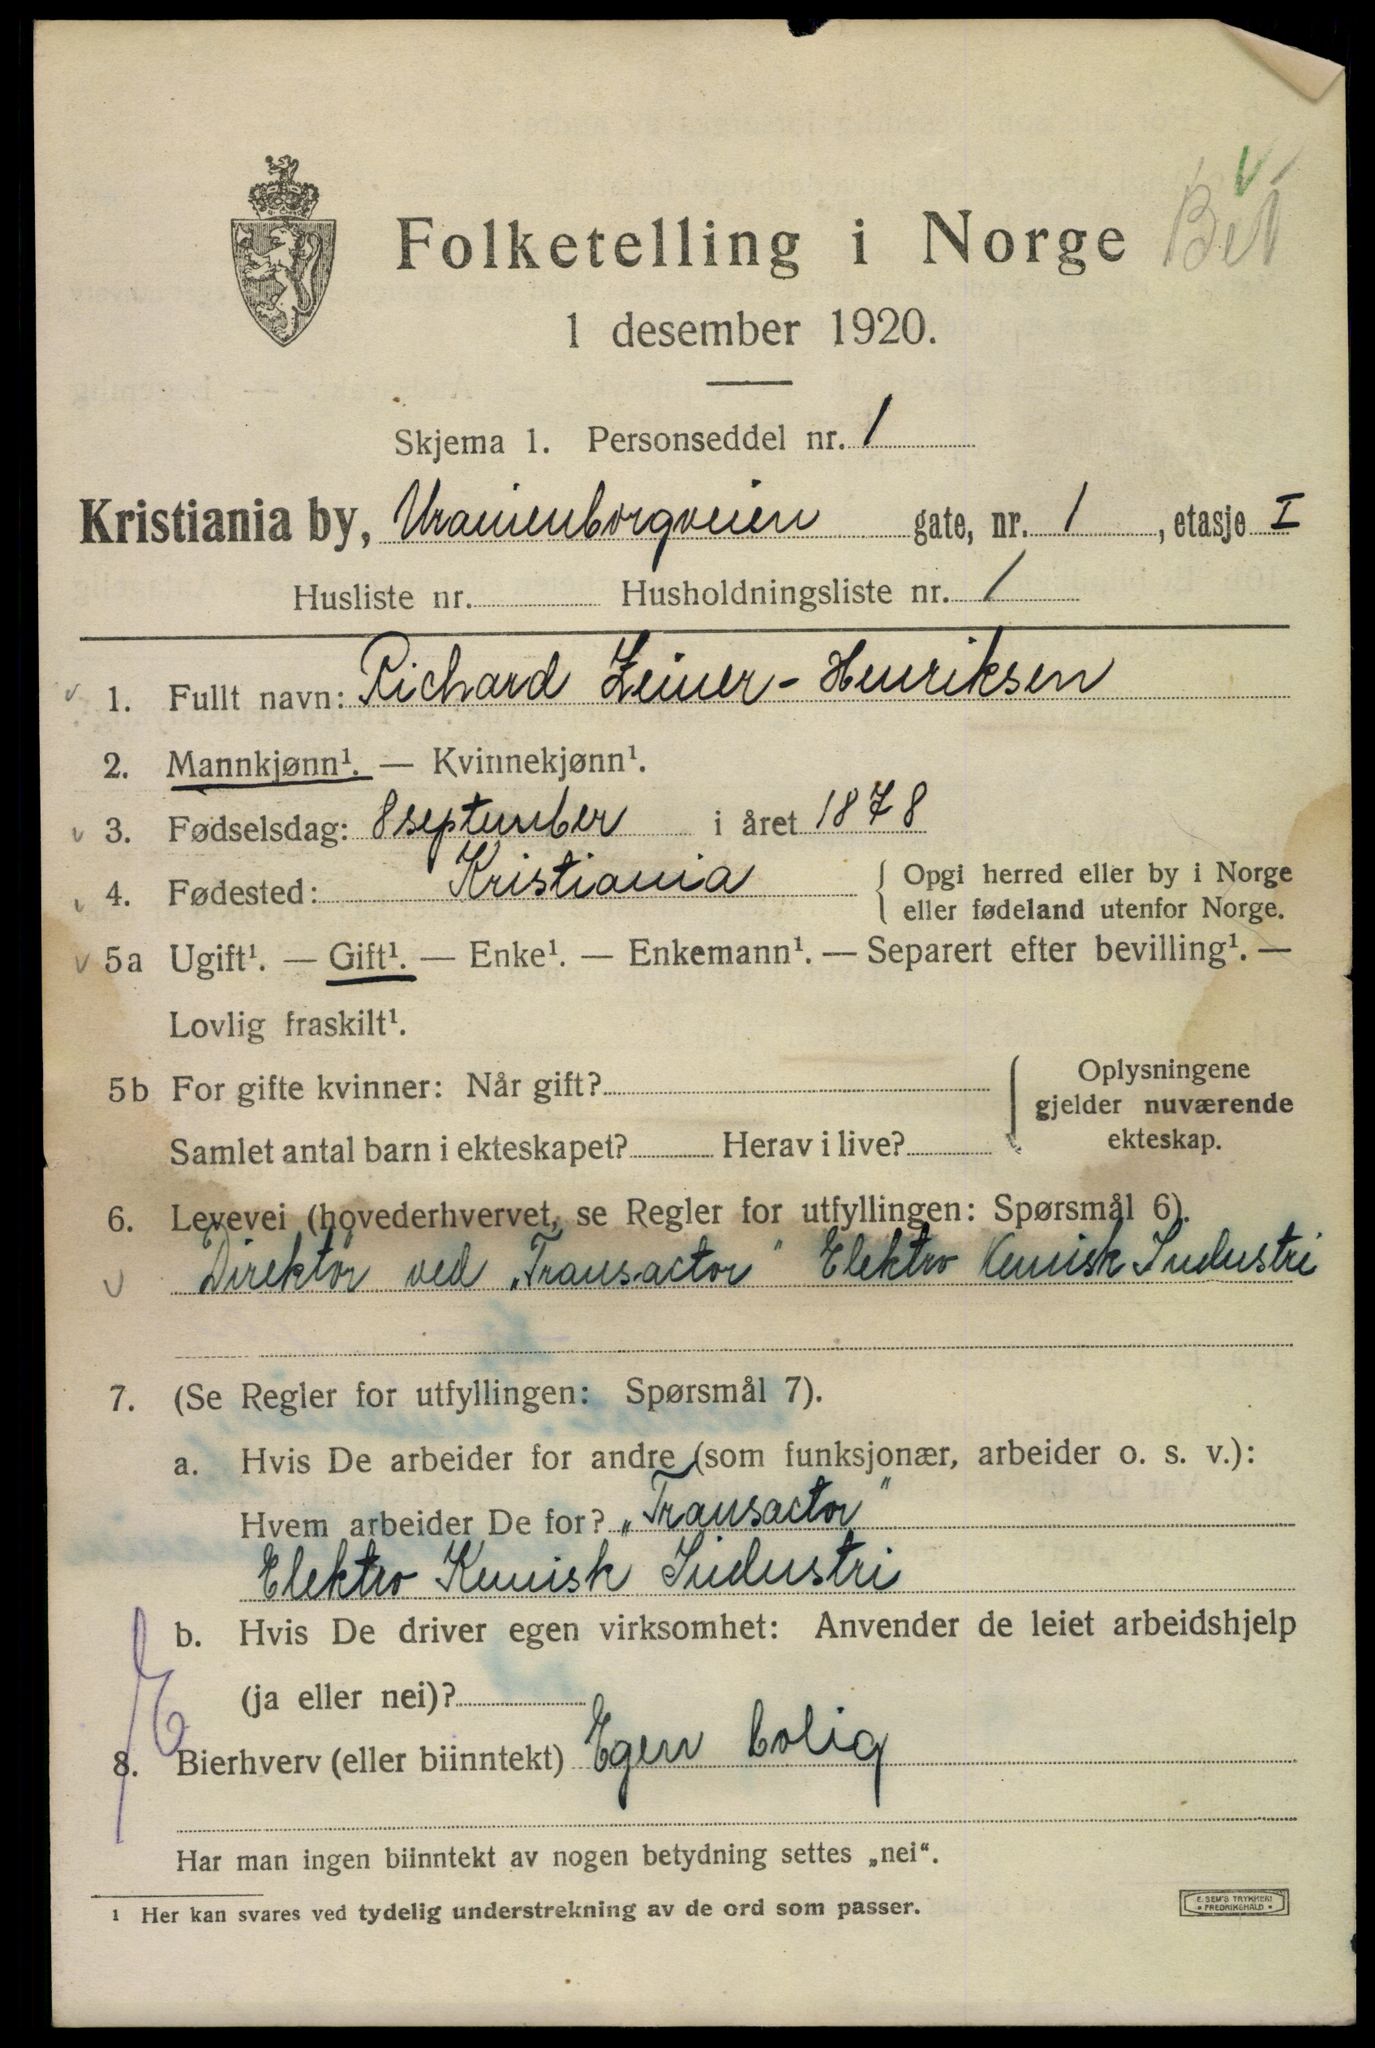 Folketelling i Norge
1 desember 1920.
Skjema 1. Personseddel nr. 1
Kristiania by, Uranienborgveien gate, nr. 1, etasje I
Husliste nr. Husholdningsliste nr. 1
1. Fullt navn: Richard Zeiner-Henriksen
2. Mannkjønn¹. — Kvinnekjønn¹.
3. Fødselsdag: 8 september i året 1878
4. Fødested: Kristiania { Opgi herred eller by i Norge
eller fødeland utenfor Norge.
5a Ugift¹. — Gift¹. — Enke¹. — Enkemann¹. — Separert efter bevilling¹. —
Lovlig fraskilt¹.
5b For gifte kvinner: Når gift?
Samlet antal barn i ekteskapet? Herav i live?
Oplysningene
gjelder nuværende
ekteskap.
6. Levevei (hovederhvervet, se Regler for utfyllingen: Spørsmål 6).
Direktør ved „Transactor" Elektro Kemisk Industri
7. (Se Regler for utfyllingen: Spørsmål 7).
a. Hvis De arbeider for andre (som funksjonær, arbeider o. s. v.):
Hvem arbeider De for? „Transactor"
Elektro Kemisk Industri
b. Hvis De driver egen virksomhet: Anvender de leiet arbeidshjelp
(ja eller nei)?
8. Bierhverv (eller biinntekt) Egen bolig
Har man ingen biinntekt av nogen betydning settes „nei".
¹ Her kan svares ved tydelig understrekning av de ord som passer.
E. SEM'S TRYKKERI
FREDRIKSHALD